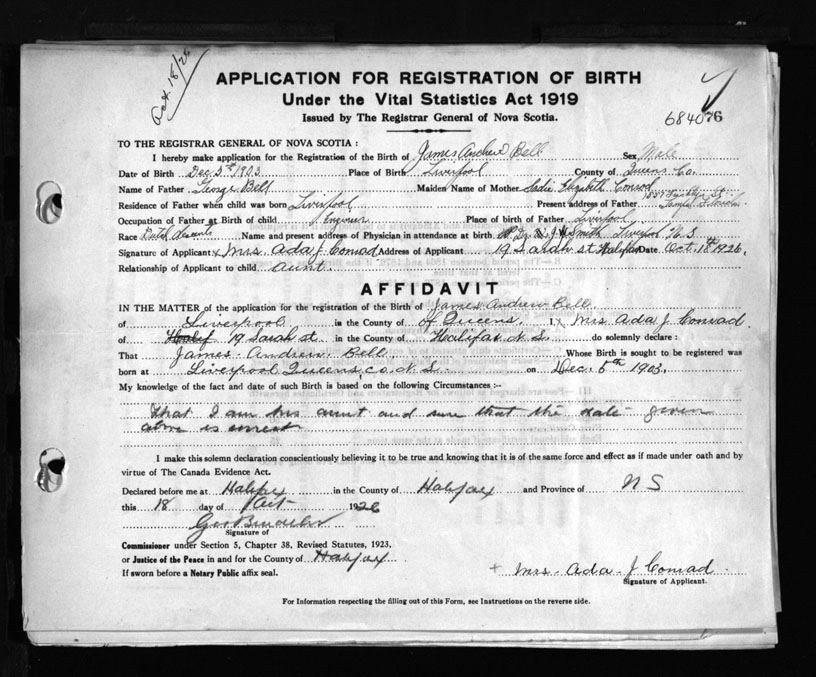 Oct 18/26
APPLICATION FOR REGISTRATION OF BIRTH
Under the Vital Statistics Act 1919
Issued by The Registrar General of Nova Scotia.
684076
TO THE REGISTRAR GENERAL OF NOVA SCOTIA:
I hereby make application for the Registration of the Birth of James Andrew Bell Sex Male
Date of Birth Dec 5th 1903 Place of Birth Liverpool County of Queens Co.
Name of Father George Bell Maiden Name of Mother Sadie Elizabeth Conrad
Residence of Father when child was born Liverpool Present address of Father
Occupation of Father at Birth of child Engineer Place of birth of Father Liverpool
Race Dutch Name and present address of Physician in attendance at birth Smith Liverpool N.S.
Signature of Applicant x Mrs Ada J Conrad Address of Applicant 19 Sarah St Halifax Date Oct. 18th 1926.
Relationship of Applicant to child aunt.
AFFIDAVIT
IN THE MATTER of the application for the registration of the Birth of James Andrew Bell
of Liverpool in the County of of Queens. I x Mrs Ada J Conrad
of Halif 19 Sarah st in the County of Halifax N.S. do solemnly declare:
That James Andrew Bell Whose Birth is sought to be registered was
born at Liverpool Queens co. N.S. on Dec. 5th 1903.
My knowledge of the fact and date of such Birth is based on the following Circumstances :—
That I am his aunt and sure that the date given
above is correct
I make this solemn declaration conscientiously believing it to be true and knowing that it is of the same force and effect as if made under oath and by
virtue of The Canada Evidence Act.
Declared before me at Halifax in the County of Halifax and Province of N S
this 18 day of Oct 1926
Geo
Signature of
Commissioner under Section 5, Chapter 38, Revised Statutes, 1923,
or Justice of the Peace in and for the County of Halifax
If sworn before a Notary Public affix seal.
+ Mrs. Ada J Conrad
Signature of Applicant.
For Information respecting the filling out of this Form, see Instructions on the reverse side.